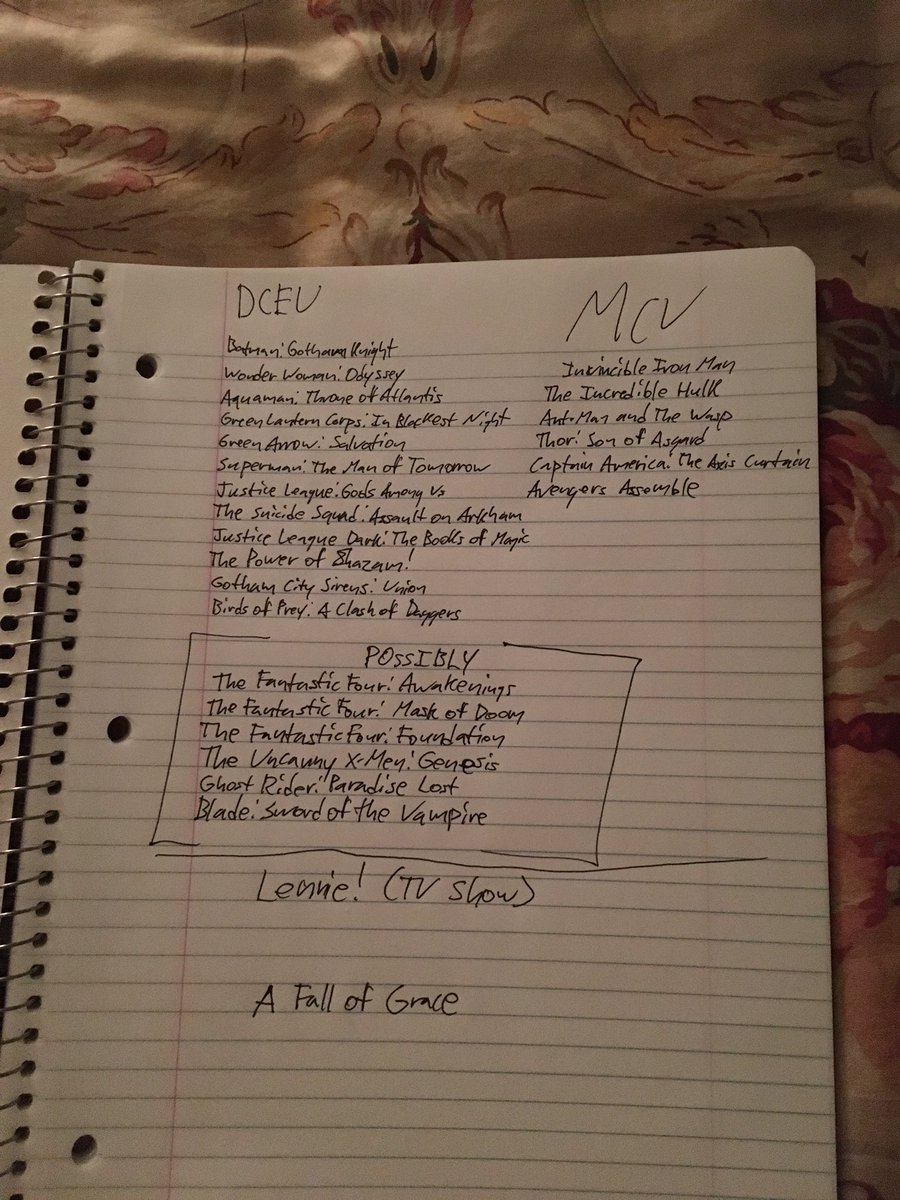 DCEU
Batman: Gotham Knight
Wonder Woman: Odyssey
Aquaman: Throne of Atlantis
Green Lantern Corps: In Blackest Night
Green Arrow: Salvation
Superman: The Man of Tomorrow
Justice League: Gods Among Us
The Suicide Squad: Assault on Arkham
Justice League Dark: The Books of Magic
The Power of Shazam!
Gotham City Sirens: Union
Birds of Prey: A Clash of Daggers
MCU
Invincible Iron Man
The Incredible Hulk
Ant-Man and The Wasp
Thor: Son of Asgard
Captain America: The Axis Curtain
Avengers Assemble
POSSIBLY
The Fantastic Four: Awakenings
The Fantastic Four: Mask of Doom
The Fantastic Four: Foundation
The Uncanny X-Men: Genesis
Ghost Rider: Paradise Lost
Blade: Sword of the Vampire
Lennie! (TV Show)
A Fall of Grace